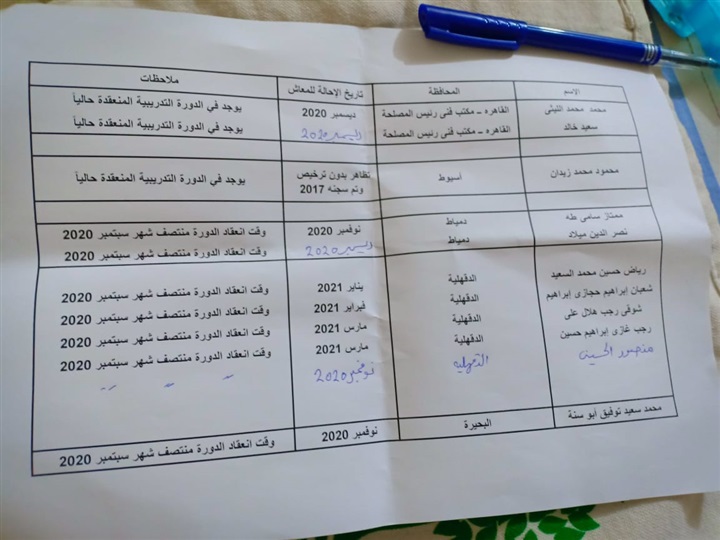 الاسم المحافظة تاريخ الإحالة للمعاش ملاحظات
محمد محمد الليثى القاهره – مكتب فنى رئيس المصلحة ديسمبر 2020 يوجد في الدورة التدريبية المنعقدة حالياً
سعيد خالد القاهره – مكتب فنى رئيس المصلحة ديسمبر 2020 يوجد في الدورة التدريبية المنعقدة حالياً
محمود محمد زيدان أسيوط تظاهر بدون ترخيص يوجد في الدورة التدريبية المنعقدة حالياً
وتم سجنه 2017
ممتاز سامى طه دمياط نوفمبر 2020 وقت انعقاد الدورة منتصف شهر سبتمبر 2020
نصر الدين ميلاد دمياط ديسمبر 2020 وقت انعقاد الدورة منتصف شهر سبتمبر 2020
رياض حسين محمد السعيد الدقهلية يناير 2021 وقت انعقاد الدورة منتصف شهر سبتمبر 2020
شعبان إبراهيم حجازى إبراهيم الدقهلية فبراير 2021 وقت انعقاد الدورة منتصف شهر سبتمبر 2020
شوقى رجب هلال على الدقهلية مارس 2021 وقت انعقاد الدورة منتصف شهر سبتمبر 2020
رجب غازى إبراهيم حسين الدقهلية مارس 2021 وقت انعقاد الدورة منتصف شهر سبتمبر 2020
منصور الدقهليه نوفمبر 2020 〃 〃 〃
محمد سعيد توفيق أبو سنة البحيرة نوفمبر 2020 وقت انعقاد الدورة منتصف شهر سبتمبر 2020